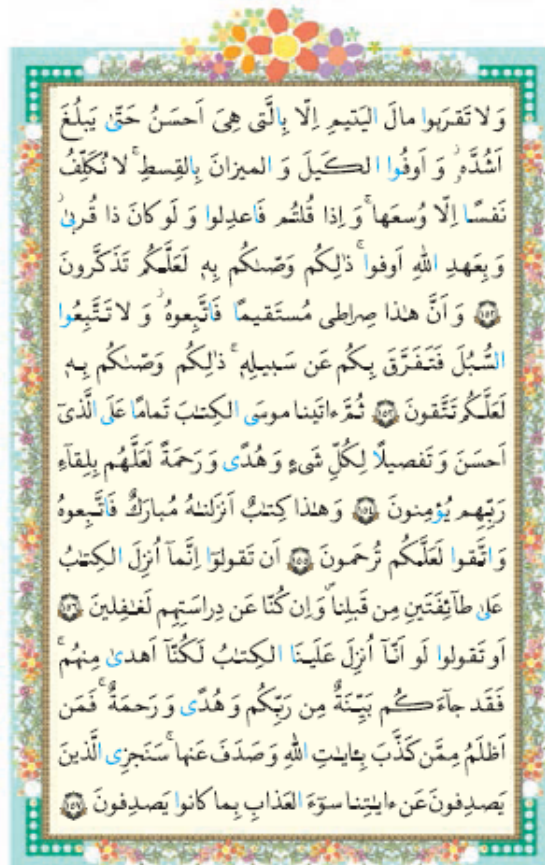 وَ لا تَقرَبوا مالَ اليَتيمِ اِلّا بِالَّتی هِیَ اَحسَنُ حَتّیٰ یَبلُغَ
اَشُدَّهٗ ۖ وَ اَوفُوا الکَیلَ وَ المیزانَ بِالقِسطِ ۖ لا نُکَلِّفُ
نَفسًا اِلّا وُسعَها ۖ وَ اِذا قُلتُم فَاعدِلوا وَ لَو کانَ ذا قُربیٰ ۖ
وَ بِعَهدِ اللهِ اَوفوا ۚ ذٰلِکُم وَصّىٰکُم بِهٖ لَعَلَّکُم تَذَکَّرونَ
﴿١٥٢﴾ وَ اَنَّ هٰذا صِراطی مُستَقیمًا فَاتَّبِعوهُ ۖ وَ لا تَتَّبِعُوا
السُّبُلَ فَتَفَرَّقَ بِکُم عَن سَبیلِهٖ ۚ ذٰلِکُم وَصّىٰکُم بِهٖ
لَعَلَّکُم تَتَّقونَ ﴿١٥٣﴾ ثُمَّ ءاتَینا موسَی الکِتٰبَ تَمامًا عَلَی الَّذیٓ
اَحسَنَ وَ تَفصیلًا لِکُلِّ شَیءٍ وَ هُدًی وَ رَحمَةً لَعَلَّهُم بِلِقآءِ
رَبِّهِم یُؤمِنونَ ﴿١٥٤﴾ وَ هٰذا کِتٰبٌ اَنزَلنٰهُ مُبارَکٌ فَاتَّبِعوهُ
وَ اتَّقوا لَعَلَّکُم تُرحَمونَ ﴿١٥٥﴾ اَن تَقولوٓا اِنَّمآ اُنزِلَ الکِتٰبُ
عَلیٰ طآئِفَتَینِ مِن قَبلِنا وَ اِن کُنّا عَن دِراسَتِهِم لَغٰفِلینَ ﴿١٥٦﴾
اَو تَقولوا لَو اَنّآ اُنزِلَ عَلَینَا الکِتٰبُ لَکُنّآ اَهدیٰ مِنهُم ۚ
فَقَد جآءَکُم بَیِّنَةٌ مِن رَبِّکُم وَ هُدًی وَ رَحمَةٌ ۚ فَمَن
اَظلَمُ مِمَّن کَذَّبَ بِـٔایٰتِ اللهِ وَ صَدَفَ عَنها ۗ سَنَجزِی الَّذینَ
یَصدِفونَ عَن ءایٰتِنا سوٓءَ العَذابِ بِما کانوا یَصدِفونَ ﴿١٥٧﴾